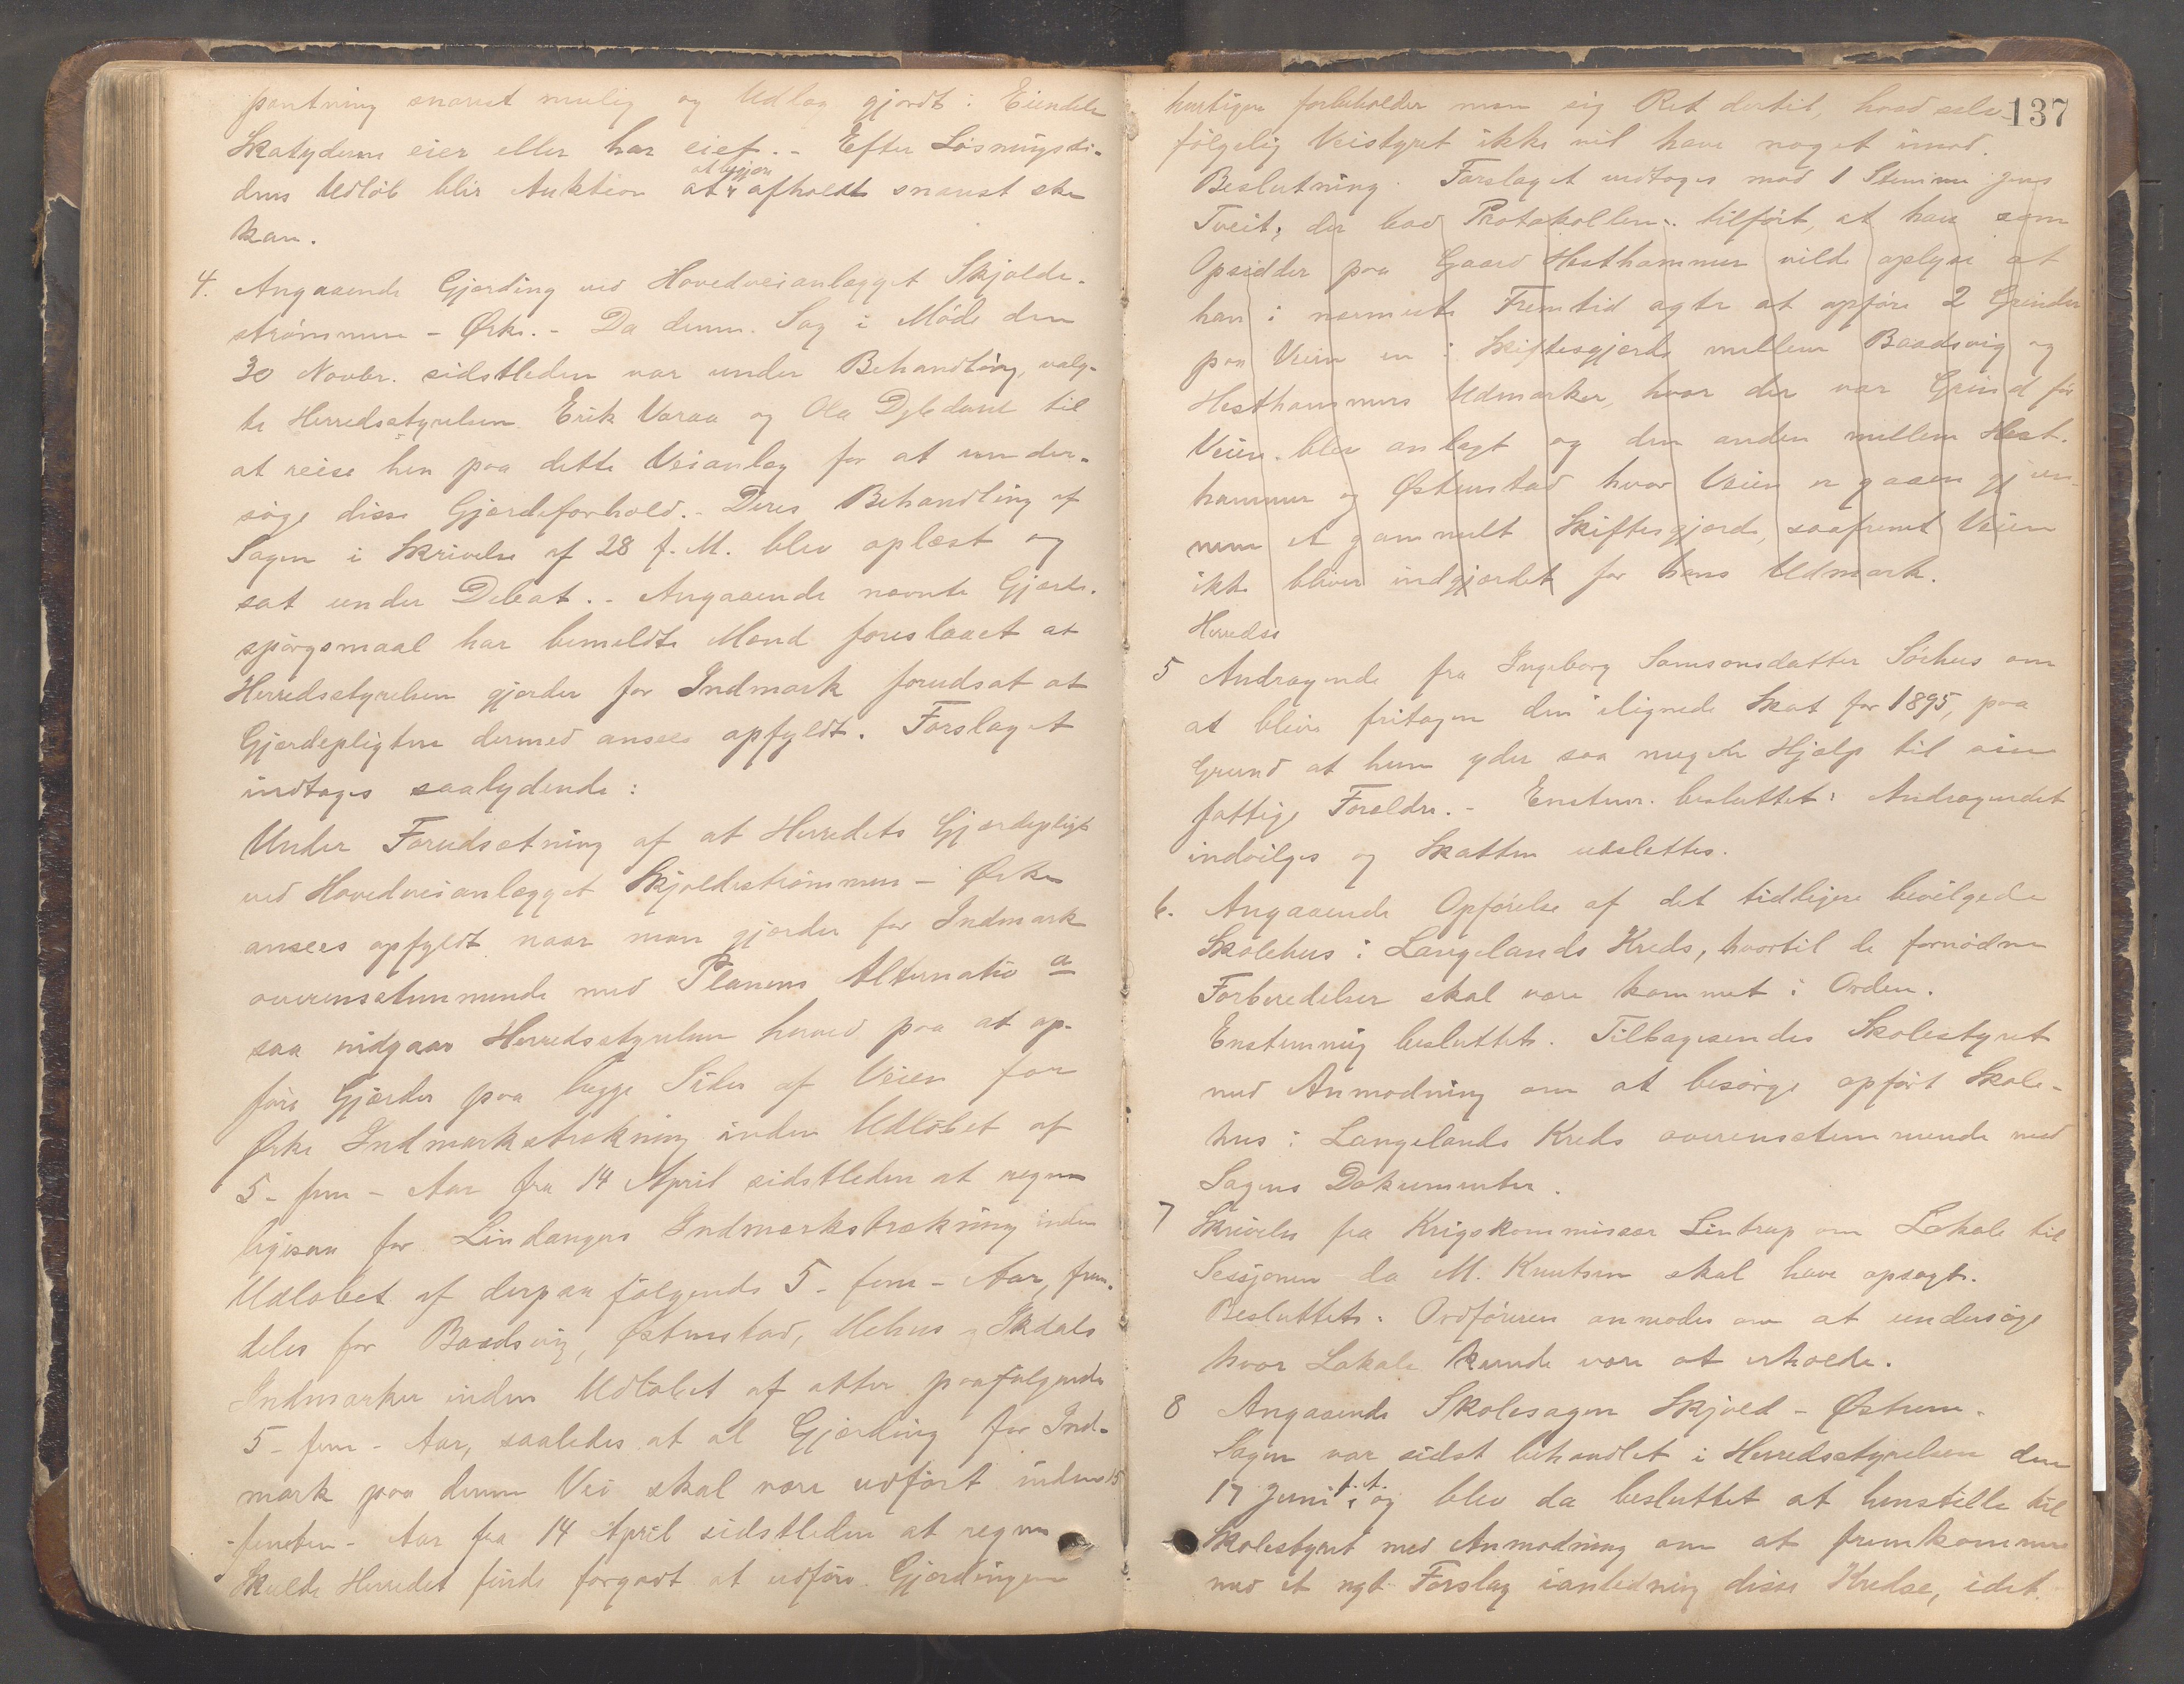 pantning snarest mulig og Udlæg gjordt i Eiendele
Skatyderne eier eller har eiet. - Efter Løsningsti-
dens Udløb blir Auktion at afholdt snarest ske
at begjære
kan.
4. Angaaende Gjærding ved Hovedveianlægget Skjolde-
strømmen - Ørke. - Da denne Sag i Møde den
30 Novbr. sidstleden var under Behandling, valg-
te Herredsstyrelsen Erik Varaa og Ola Dybdahl til
at reise hen paa dette Veianlæg for at under-
søge disse Gjærdeforhold. - Deres Behandling af
Sagen i Skrivelse af 28 f. M. blev oplæst og
sat under Debat. - Angaaende nævnte Gjærde-
spørgsmaal har bemeldte Mænd foreslaaet at
Herredsstyrelsen gjærder for Indmark forudsat at
Gjærdepligten dermed ansees opfyldt. Forslaget
indtages saalydende:
Under Forudsætning af at Herredets Gjærdepligt
ved Hovedveianlægget Skjoldestrømmen - Ørke
ansees opfyldt naar man gjærder for Indmark
overensstemmende med Planens Alternativ a
saa indgaar Herredsstyrelsen herved paa at op-
føre Gjærder paa begge Sider af Veien for
Ørke Indmarkstrækning inden Udløbet af
5 - fem - Aar fra 14 April sidstleden at regne
ligesaa for Lindanger Indmarkstrækning inden
Udløbet af derpaa følgende 5 - fem - Aar, frem-
deles for Baadsvig, Østenstad, Mehus og Ikdals
Indmarker inden Udløbet af atter paafølgende
5 - fem - Aar, saaledes at al Gjærding for Ind-
mark paa denne Vei skal være udført inden 15
- femten - Aar fra 14 April sidstleden at regne
Skulde Herredet finde forgodt at udføre Gjærdingen
137
hurtigere forbeholder man sig Ret dertil, hvad selv-
følgelig Veistyret ikke vil have noget imod.
Beslutning. Forslaget vedtoges mod 1 Stemme Jens
Tveit, der bad Protokollen tilført, at han som
Opsidder paa Gaard Hesthammer vilde oplyse at
han i nærmeste Fremtid agte at opføre 2 Grinder
paa Veien en i Skiftesgjærde mellem Baadsvig og
Hesthammers Udmarker, hvor der var Grind før
Veien blev anlagt og den anden mellem Hest-
hammer og Østenstad hvor Veien er gaaen gjen-
nem et gammelt Skiftesgjærde, saafremt Veien
ikke bliver indgjærdet for hans Udmark.
Herredss
5 Andragende fra Ingeborg Samsonsdatter Sørhus om
at blive fritagen den ilignede Skat for 1895, paa
Grund at hun yder saa megen Hjælp til sine
fattige Foreldre. - Enstem. besluttet: Andragendet
indvilges og Skatten udslettes.
6. Angaaende Opførelse af det tidligere bevilgede
Skolehus i Langelands Kreds, hvortil de fornødne
Forberedelser skal være kommet i Orden.
Enstemmig besluttet. Tilbagesendes Skolestyret
med Anmodning om at besørge opført Skole-
hus i Langelands Kreds overensstemmende med
Sagens Dokumenter.
7 Skrivelse fra Krigskommissær Lintrup om Lokale til
Sessjonen da M. Knutsen skal have opsagt.
Besluttet: Ordføreren anmodes om at undersøge
hvor Lokale kunde være at erholde.
8 Angaaende Skolesagen Skjold - Østrem.
Sagen var sidst behandlet i Herredsstyrelsen den
17 Juni f. A. og blev da besluttet at henstille til
Skolestyret med Anmodning om at fremkomme
med et nyt Forslag ianledning disse Kredse, idet